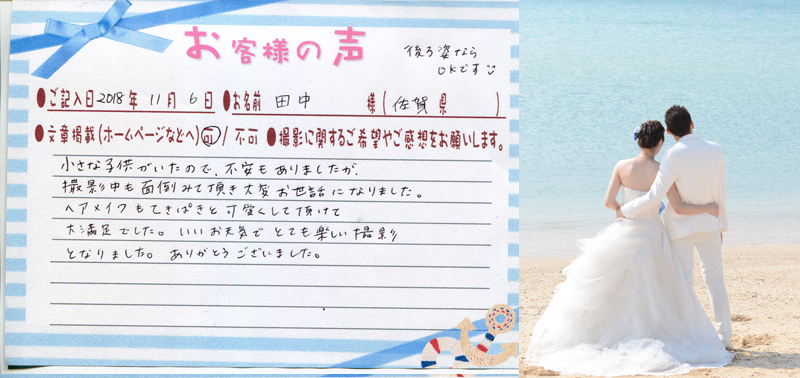 お客様の声
後ろ姿なら
OKです
●ご記入日 2018年 11月 6日 ●お名前 田中 様(佐賀県)
●文章掲載(ホームページなどへ)可/不可 ●撮影に関するご希望やご感想をお願いします。
小さな子供がいたので、不安もありましたが、
撮影中も面倒みて頂き大変お世話になりました。
ヘアメイクもてきぱきと可愛くして頂けて
大満足でした。いいお天気でとても楽しい撮影
となりました。ありがとうございました。